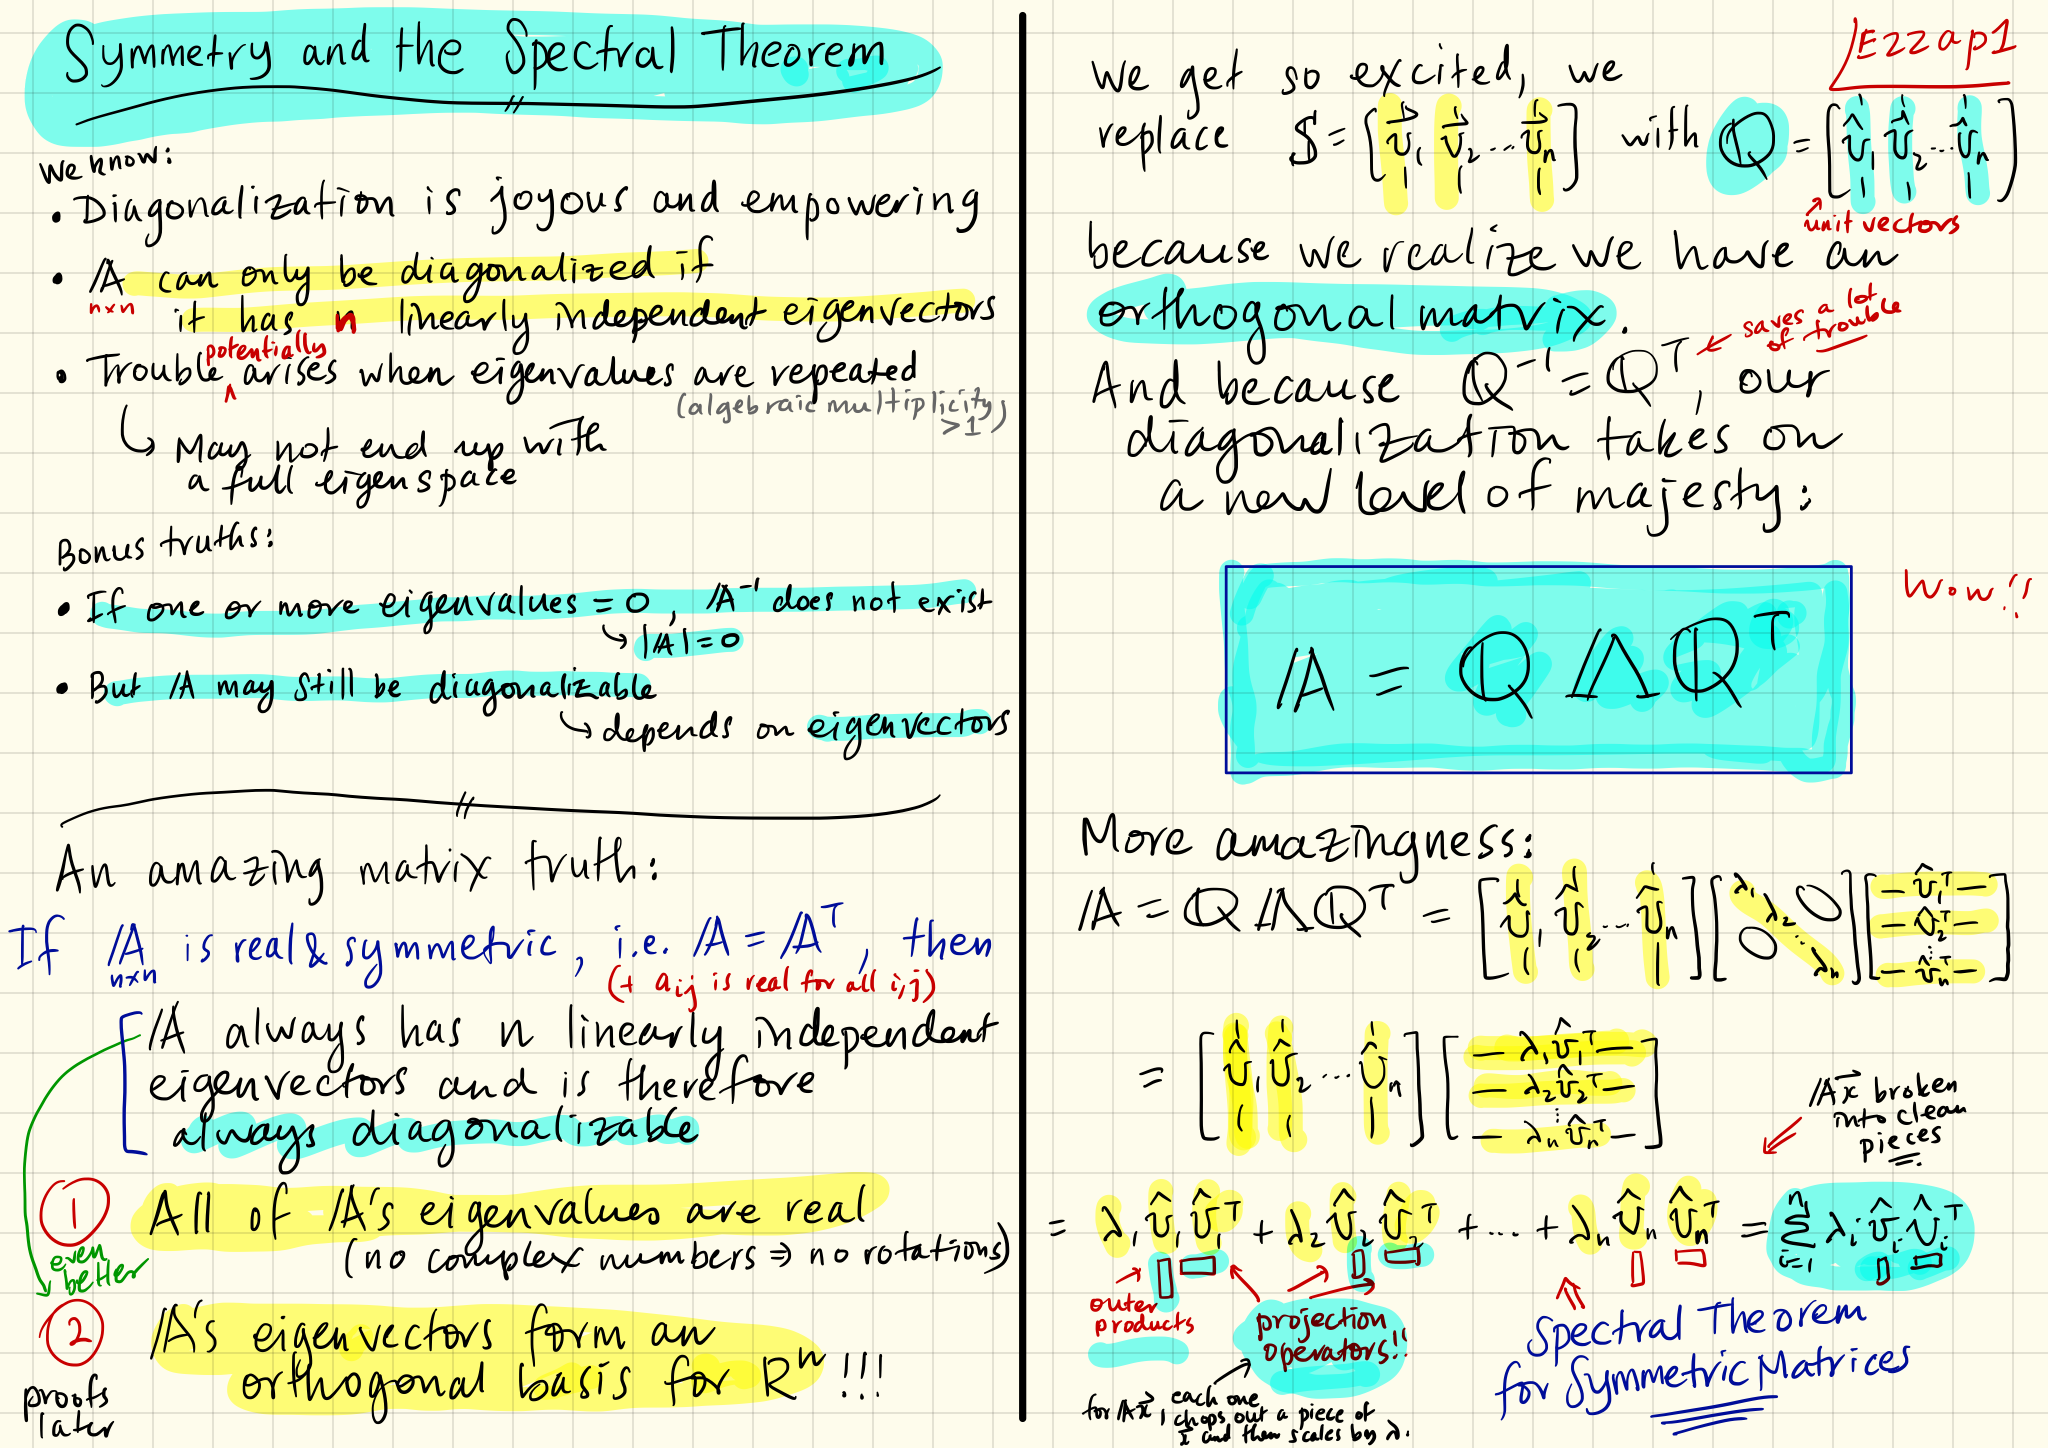 Symmetry and the Spectral Theorem
We know:
• Diagonalization is joyous and empowering
• A can only be diagonalized if
n×n
it has n linearly independent eigenvectors
potentially
• Trouble ^ arises when eigenvalues are repeated
(algebraic multiplicity > 1)
↳ May not end up with
a full eigenspace
Bonus truths:
• If one or more eigenvalues = 0, A⁻¹ does not exist
↳ |A| = 0
• But A may still be diagonalizable
↳ depends on eigenvectors
An amazing matrix truth:
If A is real & symmetric, i.e. A = Aᵀ, then
n×n
(+ aᵢⱼ is real for all i,j)
A always has n linearly independent
eigenvectors and is therefore
always diagonalizable
① All of A's eigenvalues are real
(no complex numbers ⇒ no rotations)
even
better
② A's eigenvectors form an
orthogonal basis for Rⁿ !!!
proofs
later
Ezzap1
We get so excited, we
replace S = [v⃗₁ v⃗₂ ... v⃗ₙ] with Q = [v̂₁ v̂₂ ... v̂ₙ]
unit vectors
because we realize we have an
orthogonal matrix.
saves a lot
of trouble
And because Q⁻¹ = Qᵀ, our
diagonalization takes on
a new level of majesty:
A = Q Λ Qᵀ
Wow!!
More amazingness:
A = Q Λ Qᵀ = [v̂₁ v̂₂ ... v̂ₙ] [λ₁ λ₂ ... λₙ 0 0] [– v̂₁ᵀ – – v̂₂ᵀ – ⋮ – v̂ₙᵀ –]
= [v̂₁ v̂₂ ... v̂ₙ] [– λ₁v̂₁ᵀ – – λ₂v̂₂ᵀ – ⋮ – λₙv̂ₙᵀ –]
Ax⃗ broken
into clean
pieces
= λ₁v̂₁v̂₁ᵀ + λ₂v̂₂v̂₂ᵀ + ... + λₙv̂ₙv̂ₙᵀ = Σᵢ₌₁ⁿ λᵢv̂ᵢv̂ᵢᵀ
outer
products
projection
operators!!
for Ax⃗, each one
chops out a piece of
x⃗ and then scales by λ.
Spectral Theorem
for Symmetric Matrices